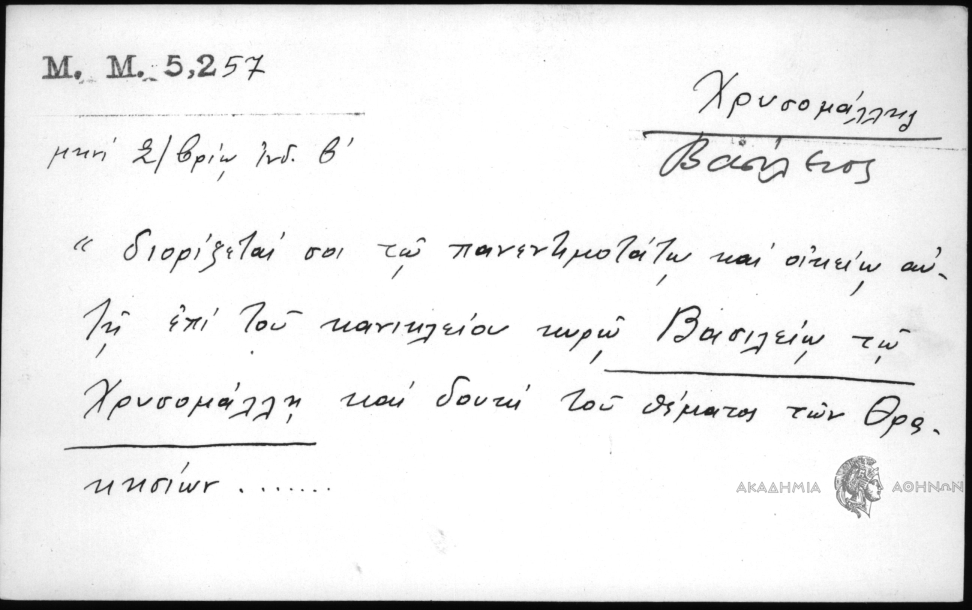 Μ. Μ. 5,257
Χρυσομάλλης
Βασίλειος
μηνὶ Σ/βρίῳ ἰνδ. β΄
“ διορίζεταί σοι τῷ πανεντιμοτάτῳ καὶ οἰκείῳ αὐ-
τῇ ἐπὶ τοῦ κανικλείου κυρῷ Βασιλείῳ τῷ
Χρυσομάλλῃ καὶ δουκὶ τοῦ θέματος τῶν Θρᾳ-
κησίων .......
ΑΚΑΔΗΜΙΑ ΑΘΗΝΩΝ